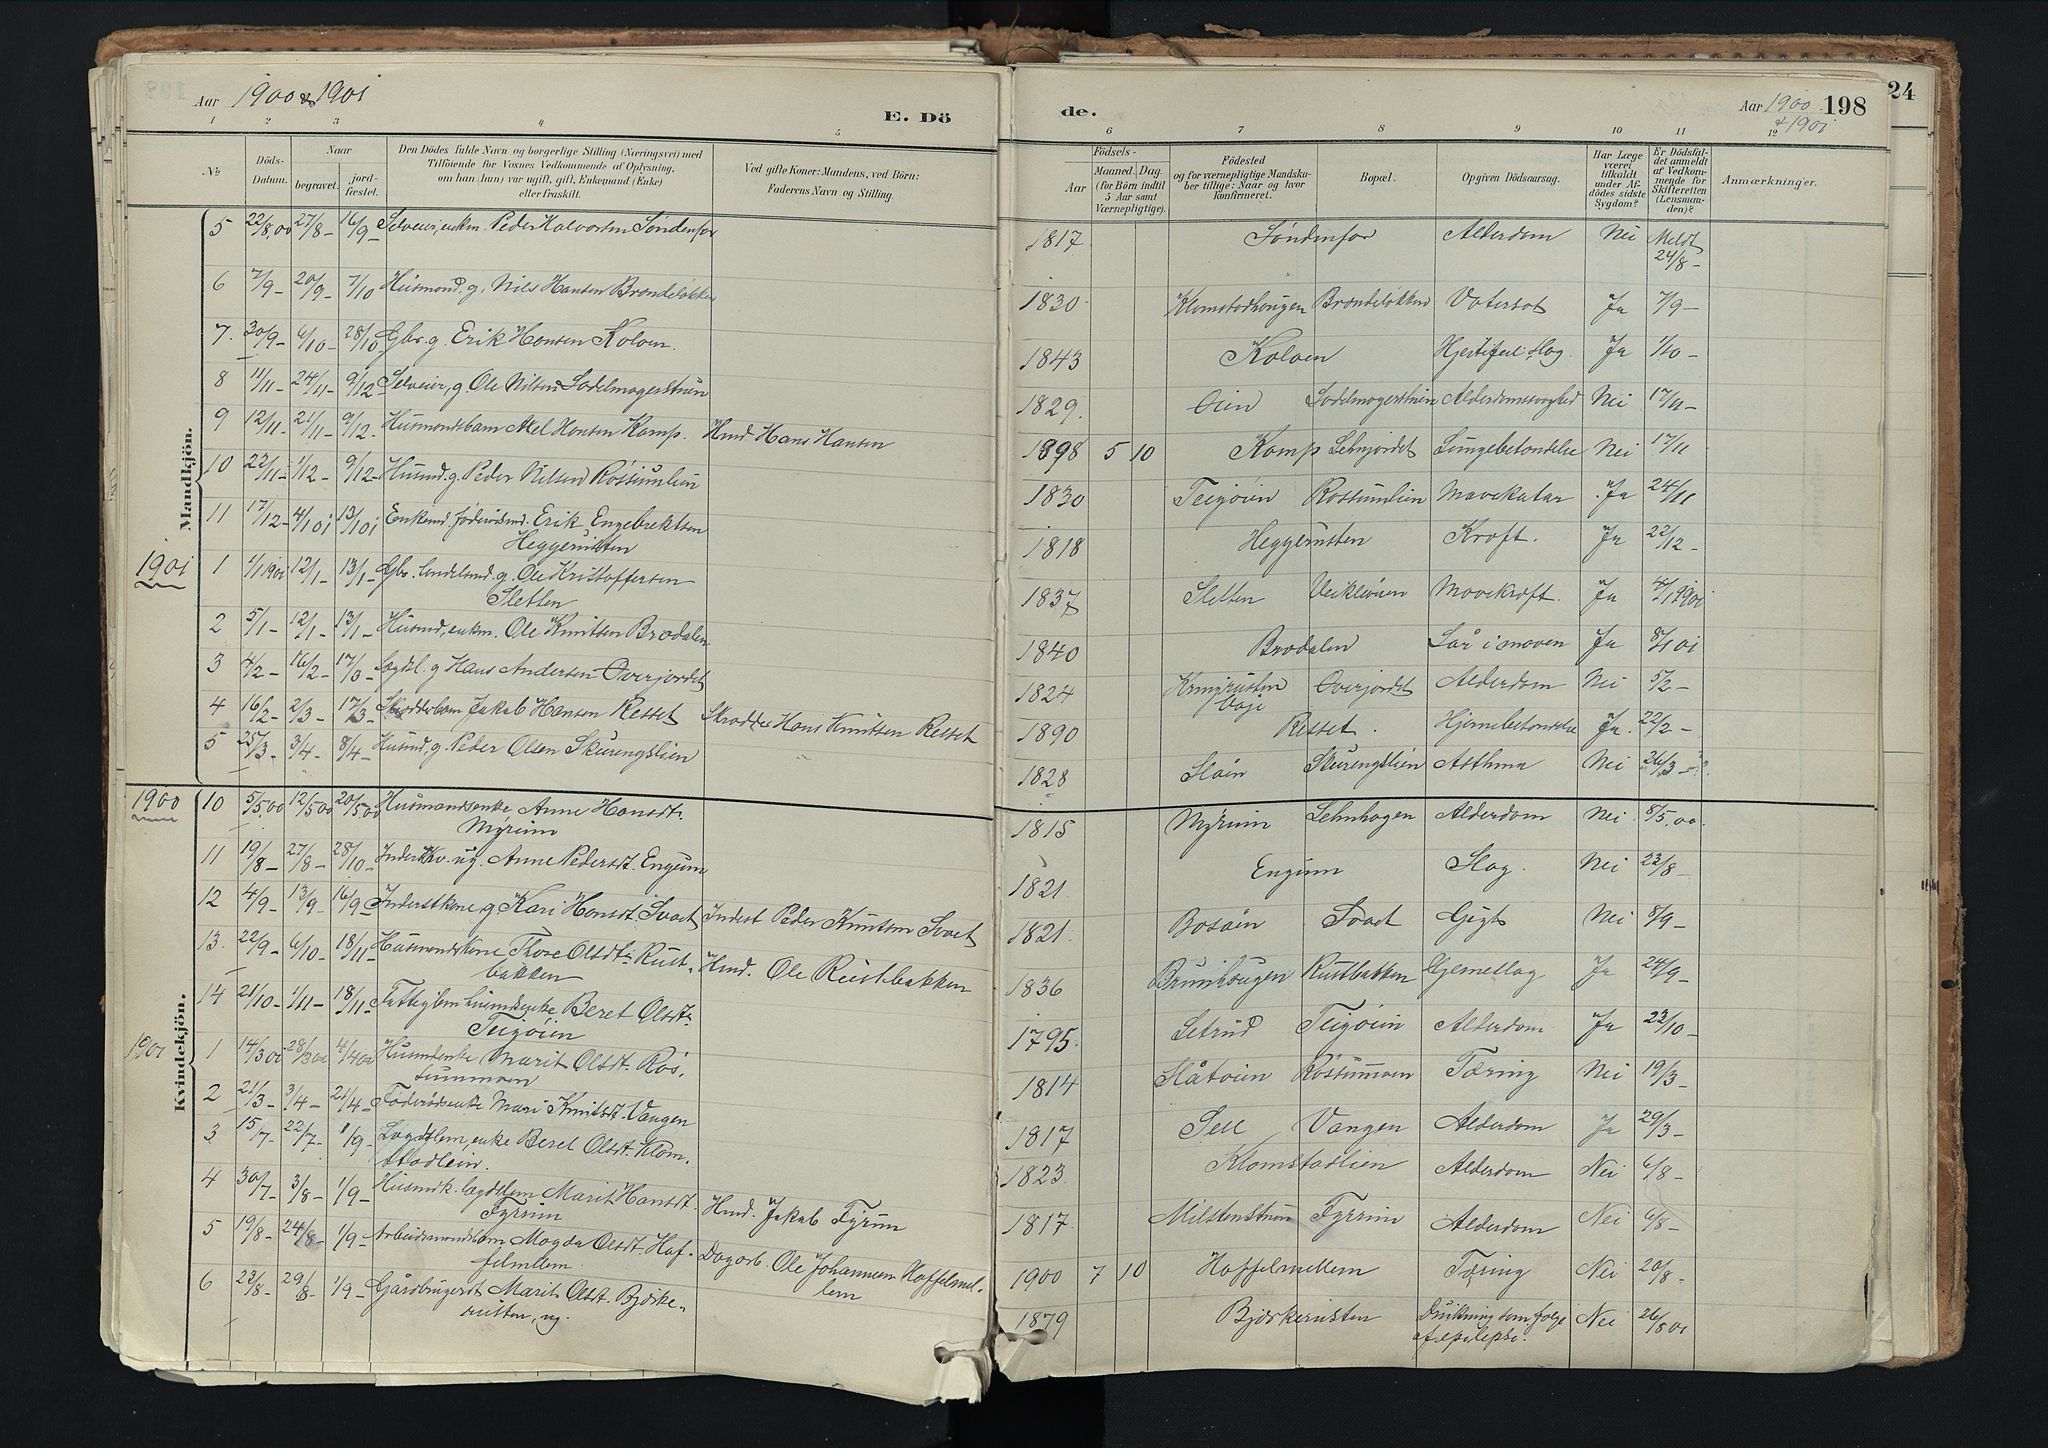 Aar 1900 & 1901
E. Dö
de.
Aar 1900 & 1901
198
24
1 2 3 4 5 6 7 8 9 10 11 12
No.
Döds-Datum.
Naar
begravet.
jordfæstet.
Den Dödes fulde Navn og borgerlige Stilling (Næringsvei) med
Tilföiende for Voxnes Vedkommende af Oplysning,
om han (hun) var ugift, gift, Enkemand (Enke)
eller fraskilt.
Ved gifte Koner: Mandens, ved Börn:
Faderens Navn og Stilling.
Födsels-
Aar
Maaned. Dag.
(for Börn indtil
5 Aar samt
Værnepligtige).
Födested
og for værnepligtige Mandskaber tillige: Naar og hvor
konfirmeret.
Bopæl.
Opgiven Dödsaarsag.
Har Læge
været
tilkaldt
under Afdödes sidste
Sygdom?
Er Dödsfaldet anmeldt
af Vedkommende for
Skifteretten
(Lensmanden)?
Anmærkninger.
Mandkjön.
5 22/8.00 27/8 16/9 Selveier, enkm. Peder Halvorsen Søndenfor 1817 Søndenfor Alderdom Nei Meldt 24/8
6 7/9 20/9 7/10 Husmand. g. Nils Hansen Brændeløkken 1830 Klomstadhougen Brændeløkken Vatersot Ja 7/9
7. 30/9 6/10 28/10 Gbr. g. Erik Hansen Kolven. 1843 Kolven Hjertefeil. Slag. Ja 1/10
8 11/11 24/11 9/12 Selveier, g. Ole Nilsen Sadelmagerstuen 1829. Øien Sadelmagerstuen Alderdomssvaghed Nei 17/11
9 12/11 21/11 9/12 Husmandsbarn Hansen Kamp. Hmd Hans Hansen 1898 5 10 Kamp Lehnjordet Lungebetændelse Nei 17/11
10 22/11 1/12 9/12 Husmd. g. Peder Nilsen Røssumlien 1830 Teigøien Røssumlien Mavekatar Ja 24/11
11 17/12 4/1 01 13/1 01 Enkemd. føderådsmd. Erik Engebrektsen
Heggerusten 1818 Heggerusten Kræft. Ja 22/12
1901 1 4/1 1901 12/1 13/1 Gbr. g. Ole Kristoffersen
Sletten 1837 Sletten Veikleøien Mavekræft. Ja 4/1 1901
2 5/1 12/1 13/1 Husmd, enkm. Ole Knutsen Brødalen 1840 Brødalen Sår i maven Ja 8/1 01
3 4/2 16/2 17/3 Lægdsl. g Hans Andersen Øverjordet 1824 Kringrusten
Våje Øverjordet Alderdom Nei 5/2
4 16/2 2/3 17/3 Skrædderbarn Jakob Hansen Resset Skrædder Hans Knutsen Resset 1890 Resset. Hjernebetændelse Ja. 22/2
5 25/3 3/4 8/4 Husmd, g. Peder Olsen Skurengslien 1828 Sløin Skurengslien Asthma Nei 26/3
Kvindekjön.
1900 10 5/5.00 12/5 00 20/5.00 Husmandsenke, Anne Hansdt.
Myrum 1815 Myrum Lehnhagen Alderdom Nei 8/5.00.
11 19/8 27/8 28/10 Inderst Kv. ug. Anne Pedersdt. Engum 1821. Engum Slag. Nei 23/8
12 4/9 13/9 16/9 Inderstkone g Kari Hansdt. Svaet Inderst Peder Knutsen Svaet 1821. Bosøin Svaet Gigt Nei 8/9
13. 22/9 6/10 18/11 Husmandskone Thore Olsdt. Rust-
bakken Hmd. Ole Rustbakken 1836 Brunhougen Rustbakken Hjerneslag Ja 24/9
14 21/10 1/11 18/11 Fattiglem husmdsenke Beret Olsdt.
Teigøien 1795. Setrud Teigøien Alderdom Ja 23/10
1901 1 14/3 01 28/3 4/4 Husmdenke Marit Olsdt. Røs-
summoen 1814 Slåtøien Røssummoen Tæring Nei 19/3
2 21/3 3/4 21/4 Føderådsenke Mari Knutsdt. Vangen 1817 Sell Vangen Alderdom Ja 29/3
3 15/7 22/7 1/9 Lægdslem, enke Beret Olsdt. Klom-
stadlein. 1823. Klomstadlien Alderdom Nei 6/8
4 30/7 3/8 1/9 Husmdk. lægdslem Marit Hansdt.
Fyrrum Hmd. Jakob Fyrum 1817. Milstenstuen Fyrrum Alderdom Nei 6/8
5 19/8 24/8 1/9 Arbeidsmandsbarn Magda Olsdt. Haf-
felmellem. Dagarb. Ole Johannesen Haffelmel-
lem 1900 7 10 Haffelmellem Tæring Nei 20/8
6 23/8 29/8 1/9 Gårdbrugerdt. Marit Olsdt. Bjørke-
rusten, ug. 1879 Bjørkerusten Drukning som følge
af epilepsi. Nei 26/8 01